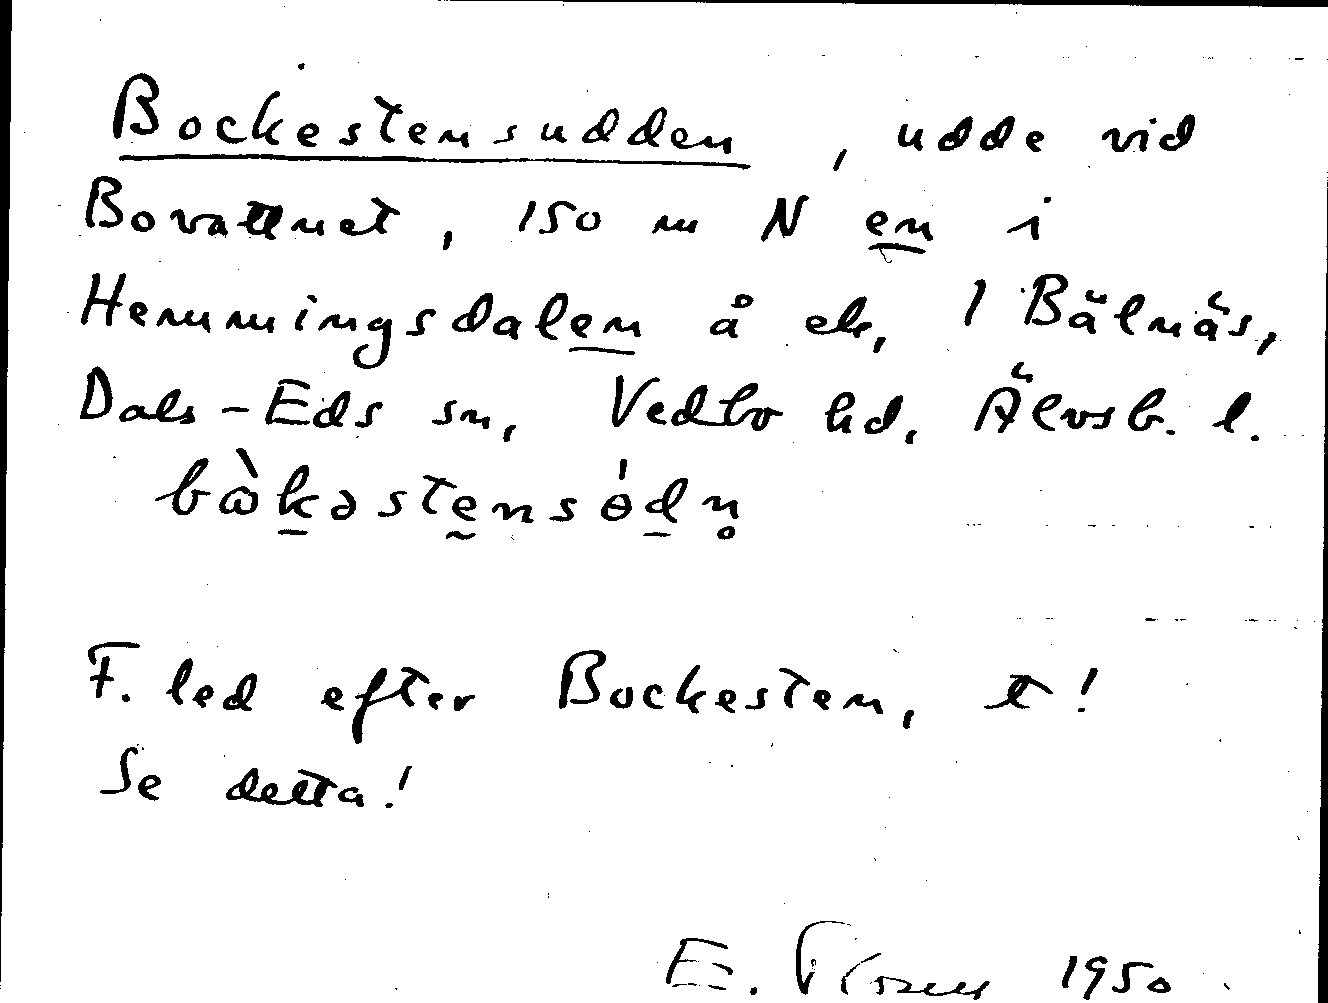 Bockestensudden, udde vid
Bovattnet, 150 m N en i
Hemmingsdalen å ek, 1 Bälnäs,
Dals-Eds sn, Vedbo hd, Älvsb. l.
bὼk̲əstḛnsɵ́d̲n̥
F. led efter Bockesten, t!
Se detta!
E. 1950